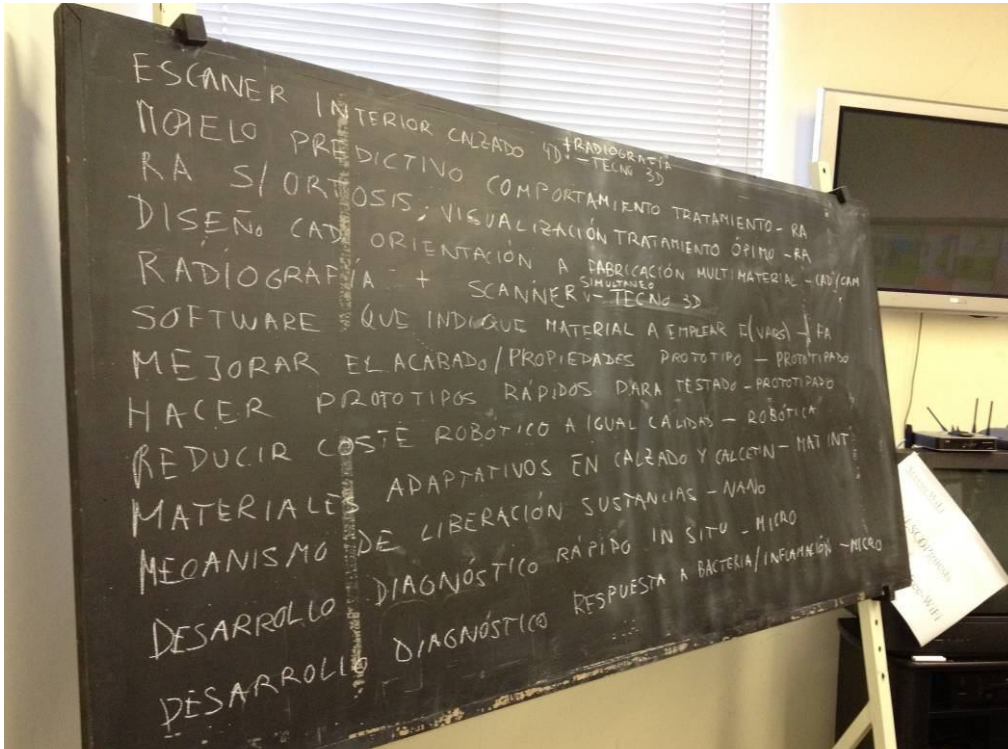 ESCANER INTERIOR CALZADO 4D: + RADIOGRAFÍA
- TECNO 3D
MODELO PREDICTIVO COMPORTAMIENTO TRATAMIENTO - RA
RA S/ORTOSIS; VISUALIZACIÓN TRATAMIENTO ÓPIMO - RA
DISEÑO CAD ORIENTACIÓN A FABRICACIÓN MULTIMATERIAL - CAD/CAM
RADIOGRAFÍA + SCANNER SIMULTANEO - TECNO 3D
SOFTWARE QUE INDIQUE MATERIAL A EMPLEAR F(VARS) - FA
MEJORAR EL ACABADO/PROPIEDADES PROTOTIPO - PROTOTIPADO
HACER PROTOTIPOS RÁPIDOS PARA TESTADO - PROTOTIPADO
REDUCIR COSTE ROBÓTICO A IGUAL CALIDAD - ROBÓTICA
MATERIALES ADAPTATIVOS EN CALZADO Y CALCETIN - MAT INT
MECANISMO DE LIBERACIÓN SUSTANCIAS - NANO
DESARROLLO DIAGNÓSTICO RÁPIDO IN SITU - MICRO
DESARROLLO DIAGNÓSTICO RESPUESTA A BACTERIA/INFLAMACIÓN - MICRO